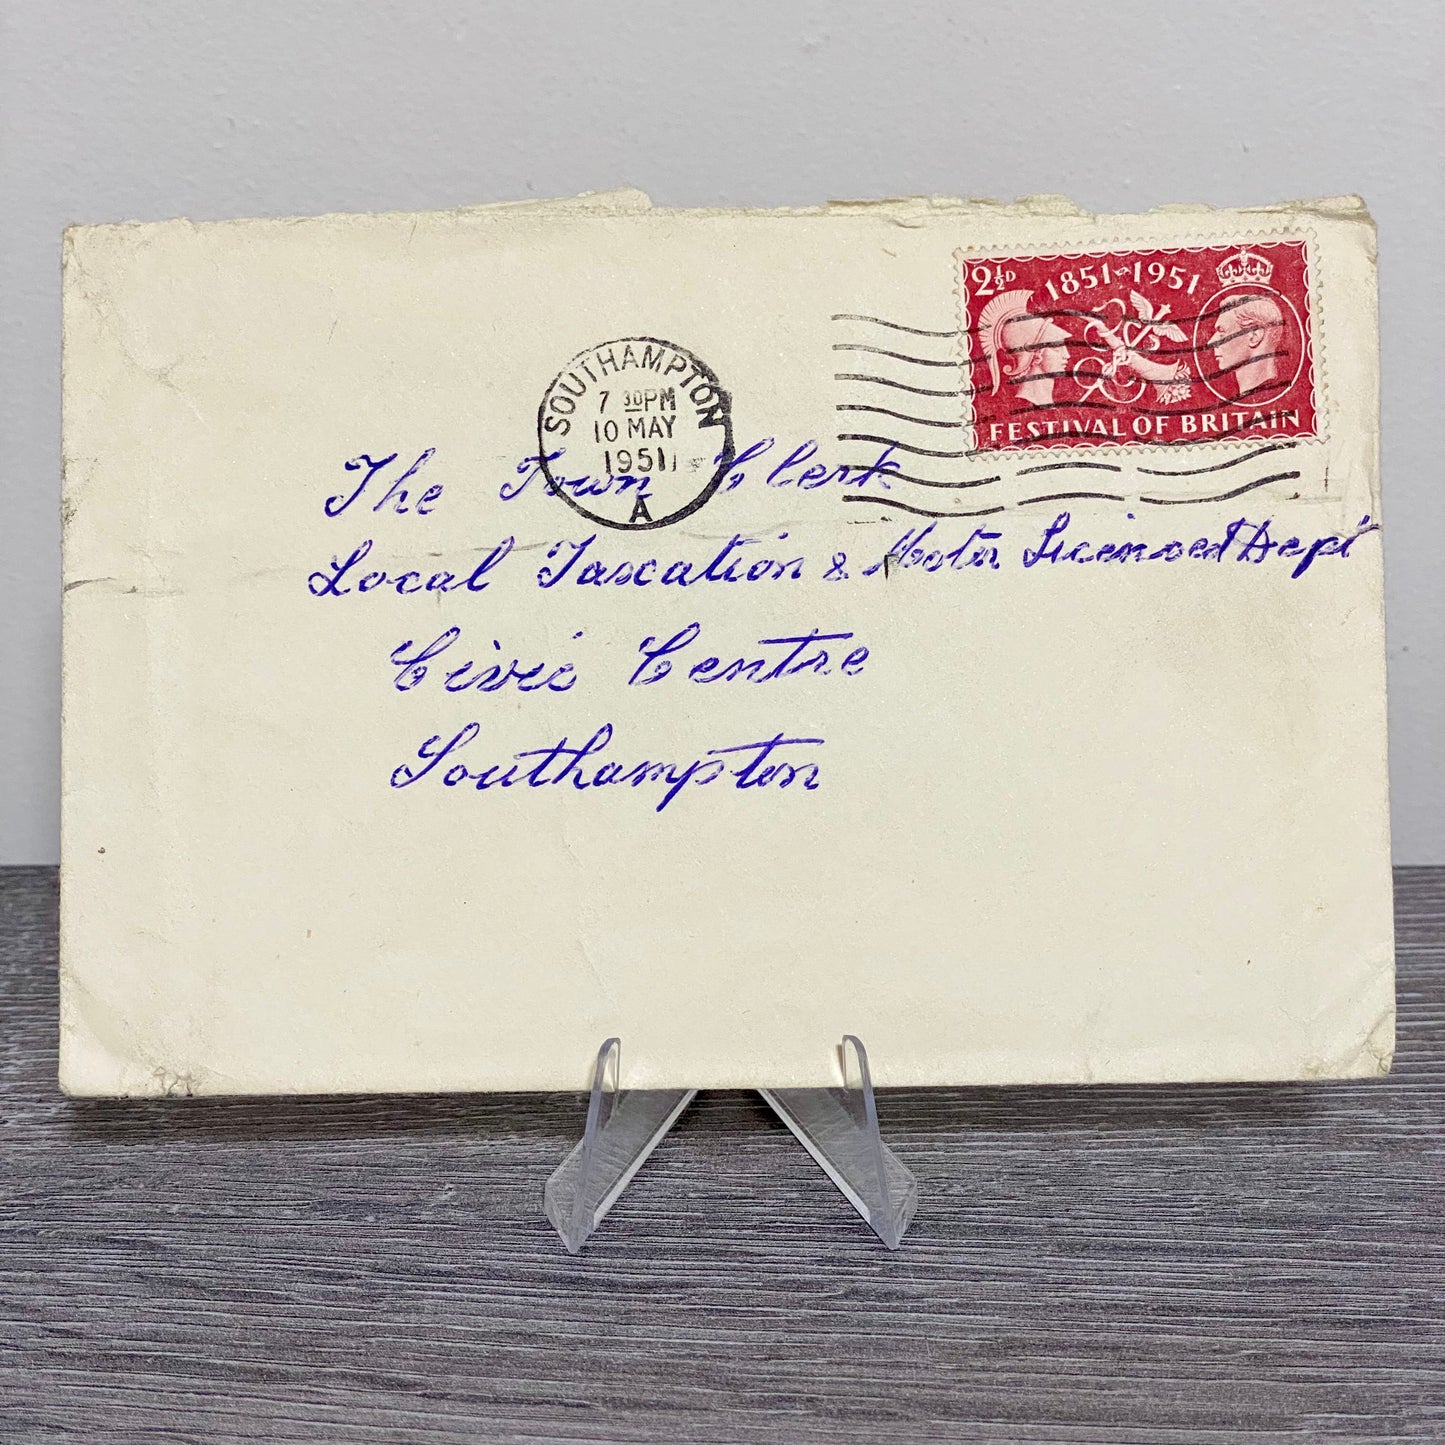 2½D
1851–1951
FESTIVAL OF BRITAIN
SOUTHAMPTON
7 30PM
10 MAY
1951
A
The Town Clerk
Local Taxation & Motor Licensed Dept
Civic Centre
Southampton